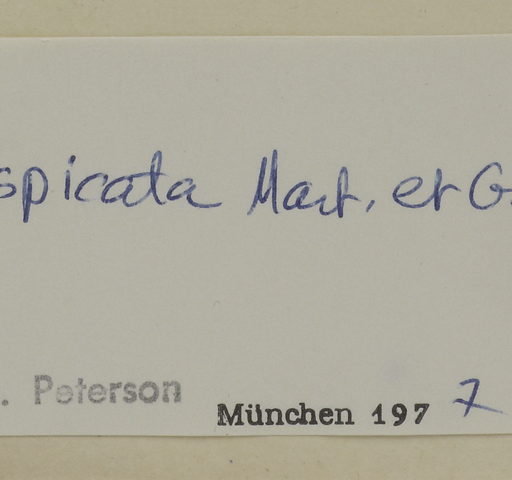 spicata Mart. et G.
. Peterson
München 197 7